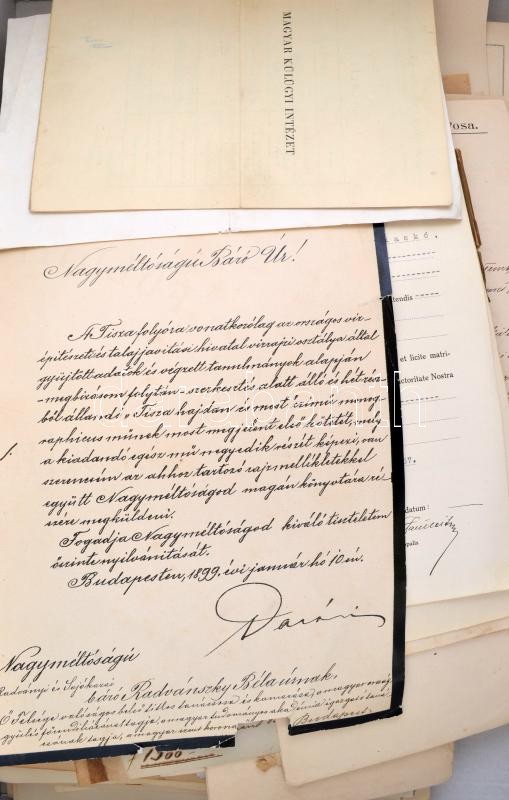 MAGYAR KÜLÜGYI INTÉZET
Posa.
Nagyméltóságú Báró Úr!
A Tisza folyóra vonatkozólag az országos viz-
épitészeti és talajjavitási hivatal vizrajzi osztálya által
gyüjtött adatok és végzett tanulmányok alapján
- megbizásom folytán - szerkesztés alatt álló és hét rész-
ből állandó „Tisza hajdan és most" czimü monog-
raphicus műnek most megjelent első kötetét, mely
a kiadandó egész mű negyedik részét képezi, van
szerencsém az ahhoz tartozó rajzmellékletekkel
együtt Nagyméltóságod magán könyvtára ré-
szére megküldeni.
Fogadja Nagyméltóságod kiváló tiszteletem
őszinte nyilvánitását.
Budapesten, 1899. évi január hó 10-én.
Darányi
Nagyméltóságú
Radványi és Sajókazai
báró Radvánszky Béla úrnak,
Ő Felsége valóságos belső titkos tanácsosa és kamarása, a magyar
Budapest.
tendis
et licite matri-
uctoritate Nostra
datum:
1500